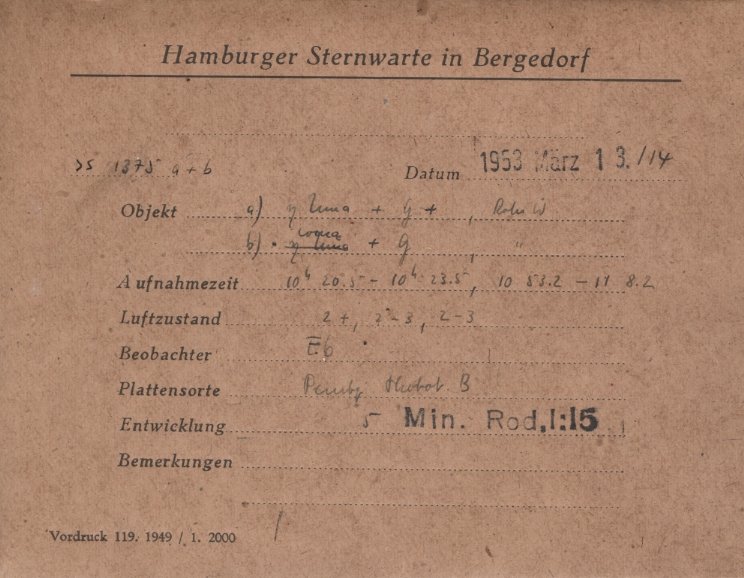 Hamburger Sternwarte in Bergedorf
1375 a+b Datum 1953 März 13./14
Objekt a) η + G + ,
b) η + G , "
Aufnahmezeit 10h 20.5 – 10h 23.5, 10 53.2 – 11 8.2
Luftzustand 2+, 2-3, 2-3
Beobachter
Plattensorte B
Entwicklung 5 Min. Rod, 1:15
Bemerkungen
Vordruck 119. 1949 / 1. 2000